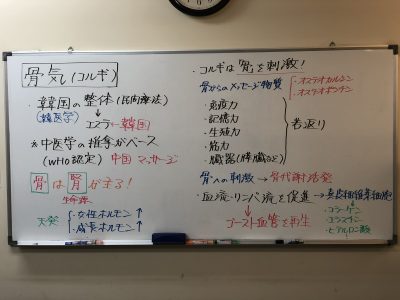 骨気(コルギ)
・韓国の整体(民間療法)
(韓医学)
エステ=韓国
※中医学の推拿がベース
(WHO認定) 中国マッサージ
骨は腎が主る!
生命源
天癸
・女性ホルモン↑
・成長ホルモン↑
・コルギは「骨」を刺激!
骨からのメッセージ物質
・オステオカルシン
・オステオポンチン
・免疫力
・記憶力
・生殖力
・筋力
・臓器(膵臓など)
若返り
骨への刺激→骨代謝活発
・血流・リンパ流を促進→
ゴースト血管を再生
・コラーゲン
・エラスチン
・ヒアルロン酸